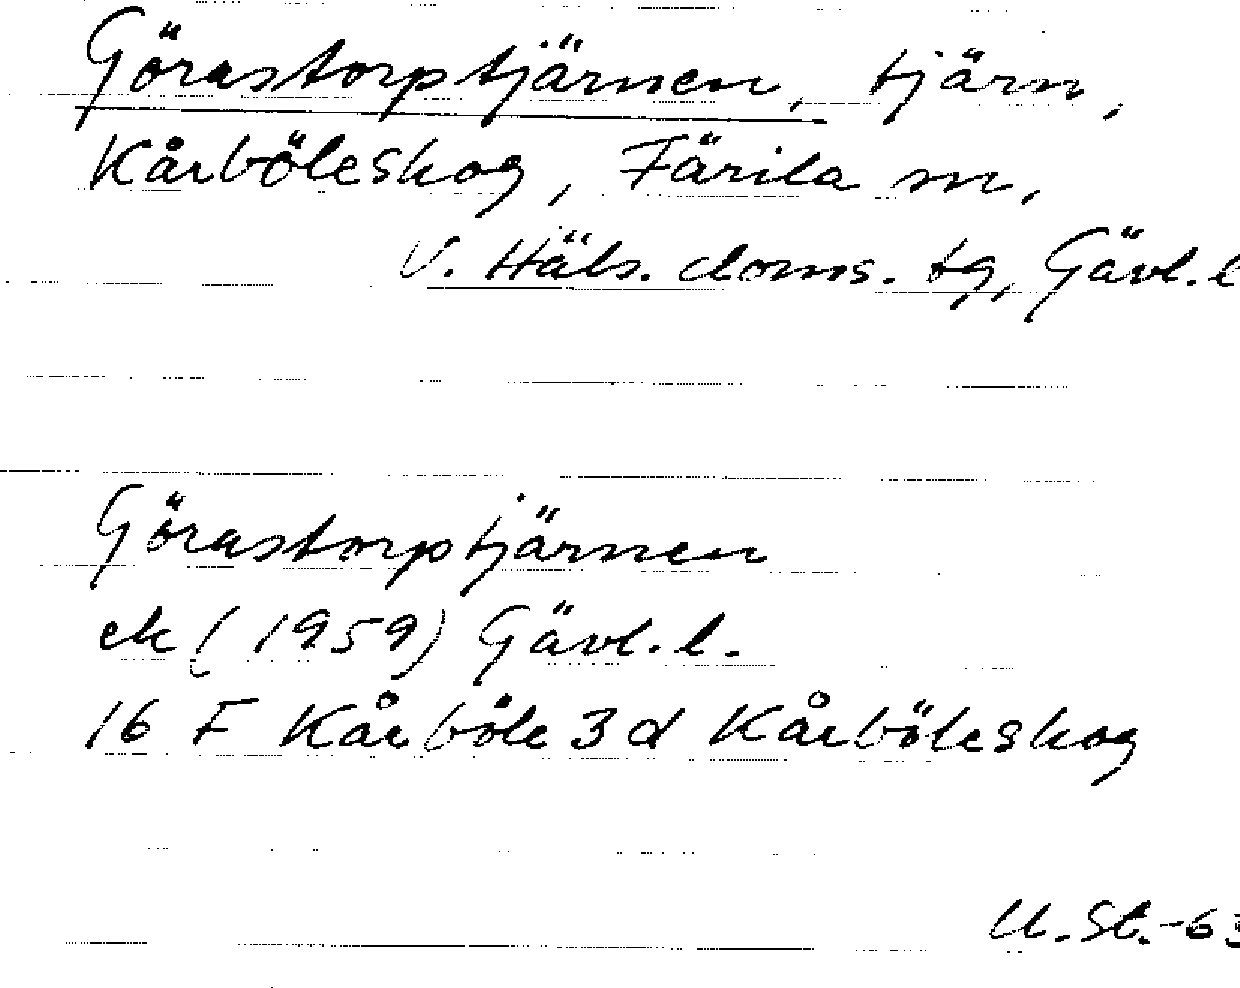 Görastorptjärnen, tjärn,
Kårböleskog, Färila sn,
V. Häls. doms. tg, Gävl. l
Görastorptjärnen
ek (1959) Gävl. l.
16 F Kårböle 3d Kårböleskog
U. St. -63